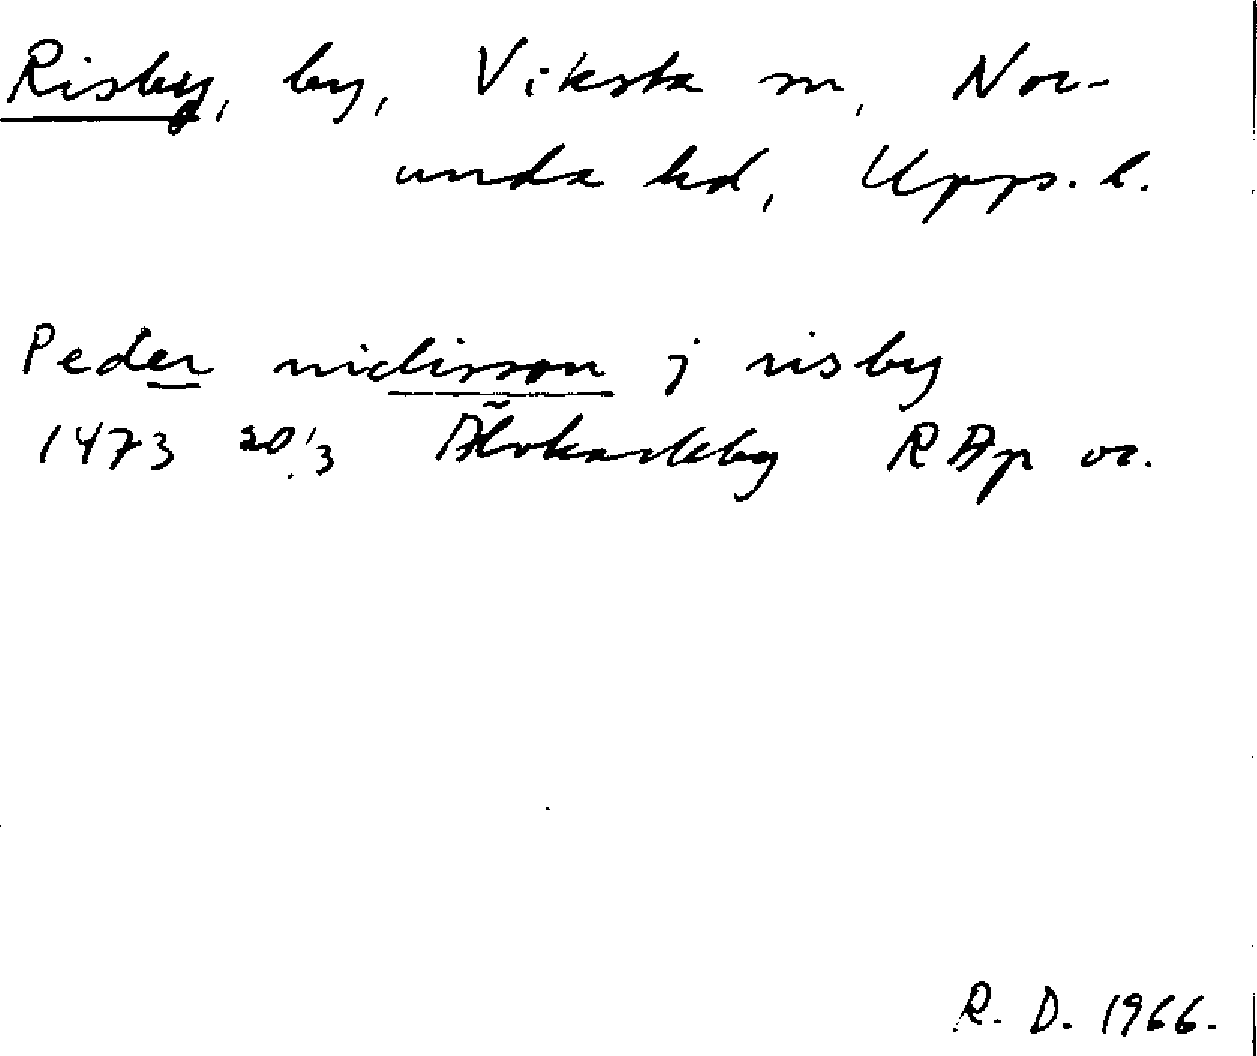 Risby, by, Viksta sn, Nor-
unda hd, Upps. l.
Peder nidisson j risby
1473 20/3 Älvkarleby RAp or.
R. D. 1966.